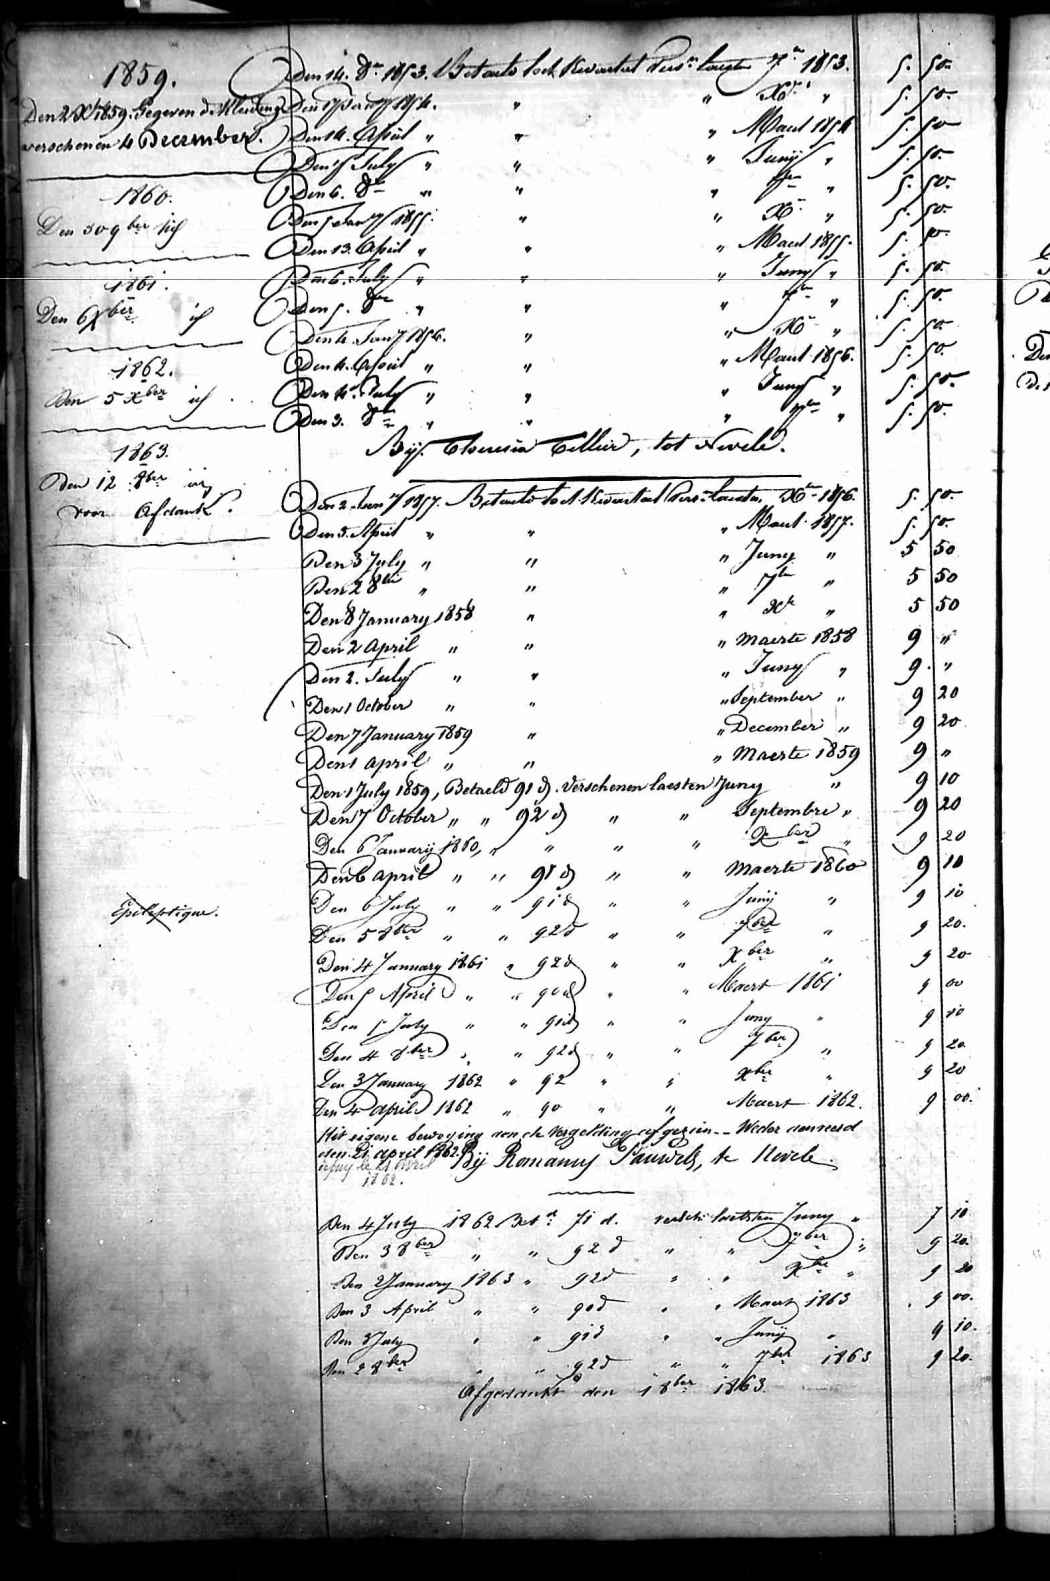 1859.
Den 2 Xbr 1859. Gegeven de Kleeding
verschenen 4 December.
1860.
Den 30 9ber ich
1861.
Den 6 Xber ich
1862.
Den 5 Xber ich
1863.
Den 12 8ber
voor Afdank.
Epileptique.
Den 14. 8re 1853. Betaeld het Kwartael Vers.n laesten 7re 1853. 5. 50.
Den 17 Janry 1854. " " Xbr " 5. 50.
Den 14. April " " " Maert 1854 5. 50
Den 5 July " " " Junij " 5. 50.
Den 6. 8re " " " 7re " 5. 50.
Den 5 Jan.y 1855. " " Xr " 5. 50.
Den 13. April " " " Maert 1855. 5. 50.
Den 6. July " " " Juny " 5. 50.
Den 5. 8re " " " 7re " 5. 50.
Den 4. Jan.y 1856. " " Xr " 5. 50
Den 4. April " " " Maert 1856. 5. 50.
Den 4. July " " " Juny " 5. 50.
Den 3. 8re " " " 7re " 5. 50.
Bij Theresia Tellier, tot Nevele.
Den 2 Jan.y 1857. Betaeld het Kwartael Vers.n laesten Xre 1856. 5. 50
Den 3. April " " " Maert 1857. 5. 50.
Den 3 July " " " Juny " 5 50
Den 2 8bre " " " 7bre " 5 50
Den 8 January 1858 " " Xbr " 5 50
Den 2 April " " " Maerte 1858 9 "
Den 2. July " " " Juny " 9. "
Den 1 October " " " September " 9 20
Den 7 January 1859 " " December " 9 20
Den 1 april " " " Maerte 1859 9 "
Den 1 July 1859, Betaeld 91 d. Verschenen laesten Juny " 9 10
Den 7 October " " 92 d " " Septembre " 9 20
Den 6 Januarij 1860, " " " " Xber " 9 20
Den 6 april " " 91 d " " Maerte 1860 9 10
Den 6 July " " 91 d " " Junij " 9 10
Den 5 8ber " " 92 d " " 7ber " 9 20.
Den 4 January 1861 " 92 d " " Xber " 9 20
Den 5 April " " 90 d " " Maert 1861 9 00
Den 5 July " " 91 d " " Juny " 9 10
Den 4 8ber " " 92 d " " 7ber " 9 20
Den 3 January 1862 " 92 " " Xber " 9 20
Den 4 april 1862 " 90 " " Maert 1862. 9 00.
Uit eigene beweging van de vergelding afgezien. Weder aanveerd
den 21 april 1862. Bij Romanus Pauwels, te Nevele.
le 21 avril
1862.
Den 4 July 1862 Bet.n 71 d. versch: laetsten Juny " 7 10
Den 3 8ber " " 92 d " " 7ber " 9 20.
Den 2 January 1863 " 92 d " " Xbr " 9 20
Den 3 April " " 90 d " " Maert 1863 9 00.
Den 3 July " " 91 d " " Junij " 9 10.
Den 2 8ber " " 92 d " " 7br 1863 9 20.
Afgedankt den 1 8ber 1863.